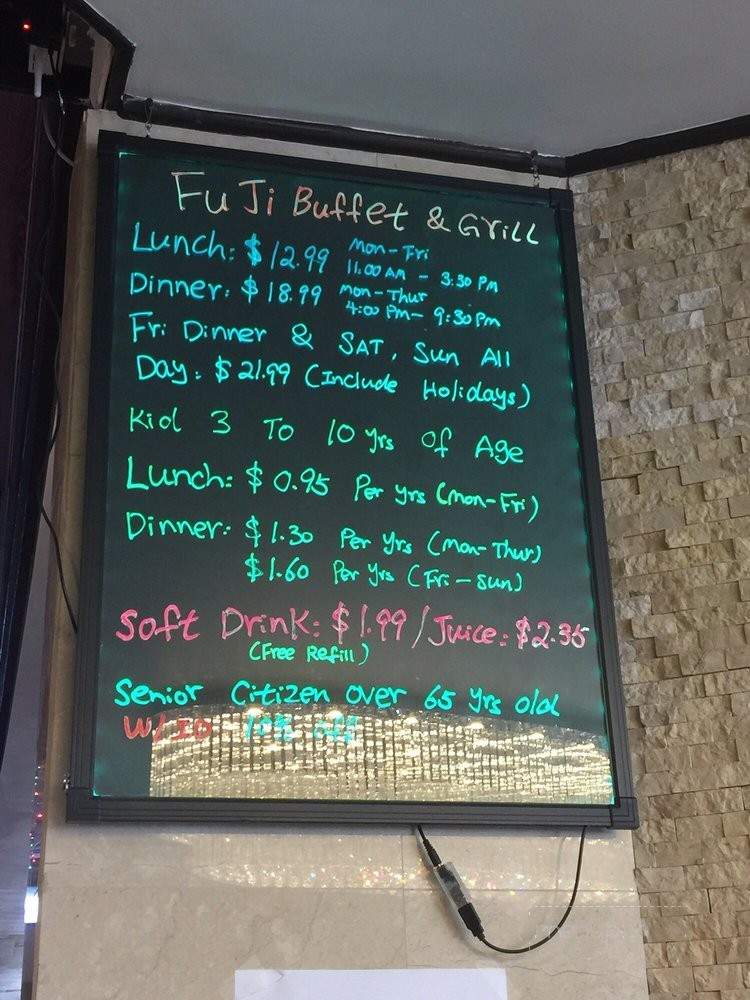 FuJi Buffet & Grill
Lunch: $12.99 Mon-Fri
11:00 AM - 3:30 PM
Dinner: $18.99 Mon-Thur
4:00 PM - 9:30 Pm
Fri Dinner & SAT, Sun All
Day: $21.99 (Include Holidays)
Kid 3 To 10 yrs of Age
Lunch: $0.95 Per yrs (Mon-Fri)
Dinner: $1.30 Per Yrs (Mon-Thur)
$1.60 Per Yrs (Fri-Sun)
Soft Drink: $1.99 / Juice: $2.35
(Free Refill)
Senior Citizen over 65 yrs old
W/ID 10% off